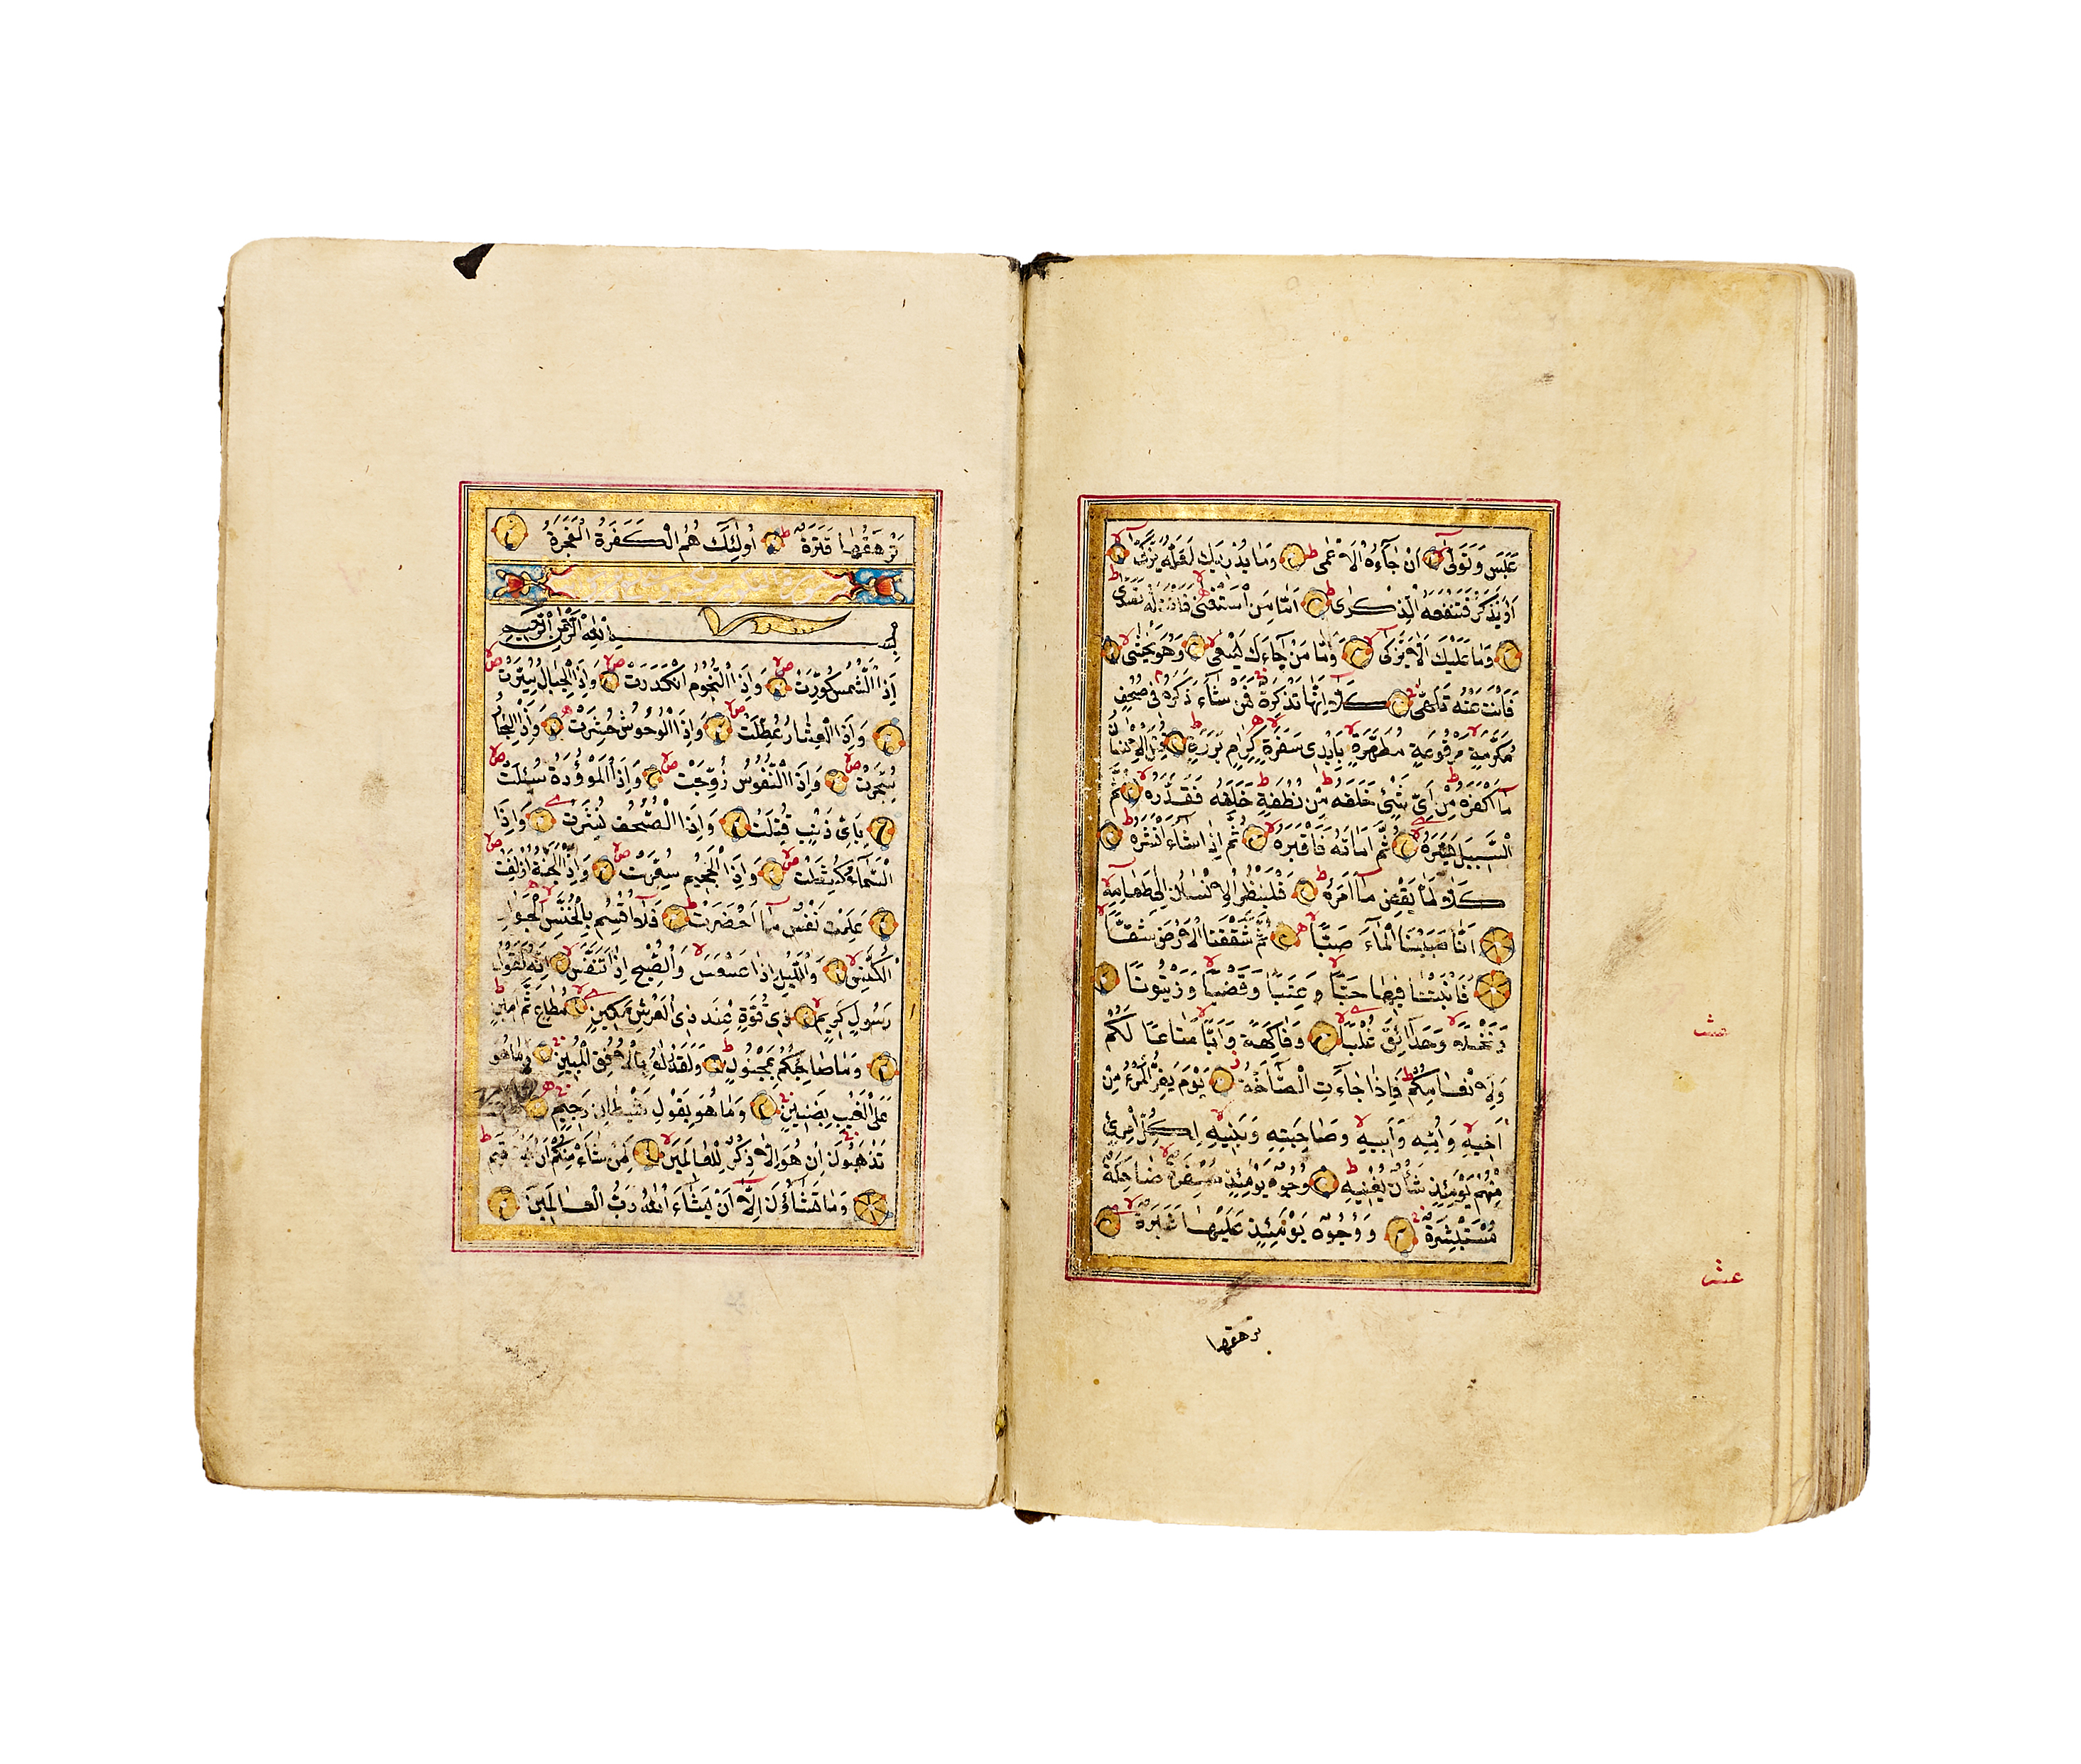 عَبَسَ وَتَوَلّٰى اَنْ جَآءَهُ الْاَعْمٰى وَمَا يُدْرِيكَ لَعَلَّهُ يَزَّكّٰى
اَوْ يَذَّكَّرُ فَتَنْفَعَهُ الذِّكْرٰى اَمَّا مَنِ اسْتَغْنٰى فَاَنْتَ لَهُ تَصَدّٰى
وَمَا عَلَيْكَ اَلَّا يَزَّكّٰى وَاَمَّا مَنْ جَآءَكَ يَسْعٰى وَهُوَ يَخْشٰى
فَاَنْتَ عَنْهُ تَلَهّٰى كَلَّا اِنَّهَا تَذْكِرَةٌ فَمَنْ شَآءَ ذَكَرَهُ فِى صُحُفٍ
مُكَرَّمَةٍ مَرْفُوعَةٍ مُطَهَّرَةٍ بِاَيْدِى سَفَرَةٍ كِرَامٍ بَرَرَةٍ قُتِلَ الْاِنْسَانُ
مَآ اَكْفَرَهُ مِنْ اَىِّ شَيْئٍ خَلَقَهُ مِنْ نُطْفَةٍ خَلَقَهُ فَقَدَّرَهُ ثُمَّ
السَّبِيلَ يَسَّرَهُ ثُمَّ اَمَاتَهُ فَاَقْبَرَهُ ثُمَّ اِذَا شَآءَ اَنْشَرَهُ
كَلَّا لَمَّا يَقْضِ مَآ اَمَرَهُ فَلْيَنْظُرِ الْاِنْسَانُ اِلٰى طَعَامِهِ
اَنَّا صَبَبْنَا الْمَآءَ صَبًّا ثُمَّ شَقَقْنَا الْاَرْضَ شَقًّا
فَاَنْبَتْنَا فِيهَا حَبًّا وَعِنَبًا وَقَضْبًا وَزَيْتُونًا
وَنَخْلًا وَحَدَآئِقَ غُلْبًا وَفَاكِهَةً وَاَبًّا مَتَاعًا لَكُمْ
وَلِاَنْعَامِكُمْ فَاِذَا جَآءَتِ الصَّآخَّةُ يَوْمَ يَفِرُّ الْمَرْءُ مِنْ
اَخِيهِ وَاُمِّهِ وَاَبِيهِ وَصَاحِبَتِهِ وَبَنِيهِ لِكُلِّ امْرِئٍ
مِنْهُمْ يَوْمَئِذٍ شَاْنٌ يُغْنِيهِ وُجُوهٌ يَوْمَئِذٍ مُسْفِرَةٌ ضَاحِكَةٌ
مُسْتَبْشِرَةٌ وَوُجُوهٌ يَوْمَئِذٍ عَلَيْهَا غَبَرَةٌ
ترهقها
عشر
عشر
تَرْهَقُهَا قَتَرَةٌ اُولٰئِكَ هُمُ الْكَفَرَةُ الْفَجَرَةُ
بِسْمِ اللّٰهِ الرَّحْمٰنِ الرَّحِيمِ
اِذَا الشَّمْسُ كُوِّرَتْ وَاِذَا النُّجُومُ انْكَدَرَتْ وَاِذَا الْجِبَالُ سُيِّرَتْ
وَاِذَا الْعِشَارُ عُطِّلَتْ وَاِذَا الْوُحُوشُ حُشِرَتْ وَاِذَا الْبِحَارُ
سُجِّرَتْ وَاِذَا النُّفُوسُ زُوِّجَتْ وَاِذَا الْمَوْؤُدَةُ سُئِلَتْ
بِاَىِّ ذَنْبٍ قُتِلَتْ وَاِذَا الصُّحُفُ نُشِرَتْ وَاِذَا
السَّمَآءُ كُشِطَتْ وَاِذَا الْجَحِيمُ سُعِّرَتْ وَاِذَا الْجَنَّةُ اُزْلِفَتْ
عَلِمَتْ نَفْسٌ مَآ اَحْضَرَتْ فَلَآ اُقْسِمُ بِالْخُنَّسِ الْجَوَارِ
الْكُنَّسِ وَالَّيْلِ اِذَا عَسْعَسَ وَالصُّبْحِ اِذَا تَنَفَّسَ اِنَّهُ لَقَوْلُ
رَسُولٍ كَرِيمٍ ذِى قُوَّةٍ عِنْدَ ذِى الْعَرْشِ مَكِينٍ مُطَاعٍ ثَمَّ اَمِينٍ
وَمَا صَاحِبُكُمْ بِمَجْنُونٍ وَلَقَدْ رَاٰهُ بِالْاُفُقِ الْمُبِينِ وَمَا هُوَ
عَلَى الْغَيْبِ بِضَنِينٍ وَمَا هُوَ بِقَوْلِ شَيْطَانٍ رَجِيمٍ
تَذْهَبُونَ اِنْ هُوَ اِلَّا ذِكْرٌ لِلْعَالَمِينَ لِمَنْ شَآءَ مِنْكُمْ اَنْ يَسْتَقِيمَ
وَمَا تَشَآؤُنَ اِلَّآ اَنْ يَشَآءَ اللّٰهُ رَبُّ الْعَالَمِينَ